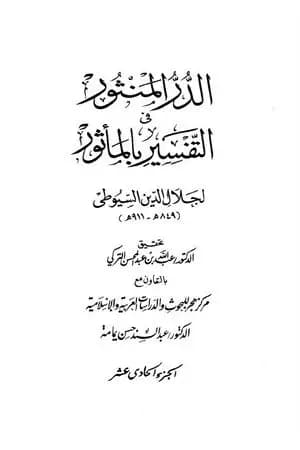 الدُّرُّ المَنْثُور
في
التَّفْسِيرِ بِالمَأْثُور
لجلال الدين السيوطي
(٨٤٩هـ - ٩١١هـ)
تحقيق
الدكتور عبد الله بن عبد المحسن التركي
بالتعاون مع
مركز هجر للبحوث والدراسات العربية والإسلامية
الدكتور عبد السند حسن يمامة
الجزء الحادي عشر